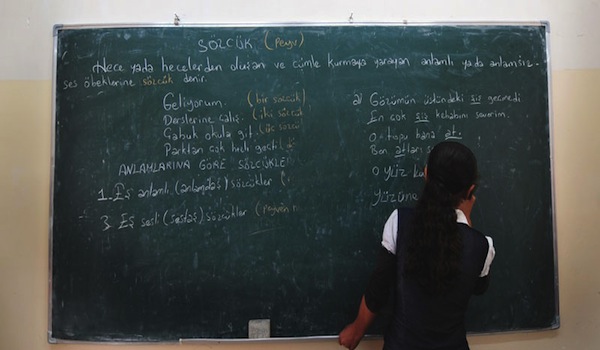 SÖZCÜK (Peyv)
Hece yada hecelerden oluşan ve cümle kurmaya yarayan anlamlı yada anlamsız
ses öbeklerine sözcük denir.
Geliyorum. (bir sözcük)
Derslerine çalış. (iki sözcük)
Çabuk okula git. (üç sözcü
Parktan çok hızlı geçti
ANLAMLARINA GÖRE SÖZCÜKLE
1. Eş anlamlı (anlamdaş) sözcükler (
3. Eş sesli (sesdaş) sözcükler (
a) Gözümün üstündeki şiş geçmedi
En çok şiş kebabını severim.
O topu bana at.
Ben atları
O yüz
Yüzüne